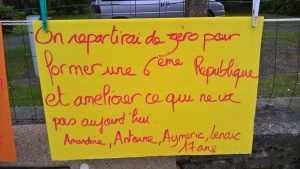 On repartirai de zéro pour
former une 6ème République
et améliorer ce qui ne va
pas aujourd'hui.
Amandine, Antoine, Aymeric, Lénaïc
17 ans